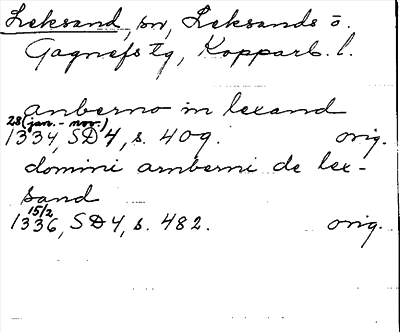 Leksand, sn, Leksands ö.
Gagnefs tg, Kopparb. l.
anberno in lexand
28 (jan. - nov.)
1334, SD 4, s. 409. orig.
domini arnberni de lex-
sand
15/2
1336, SD 4, s. 482. orig.